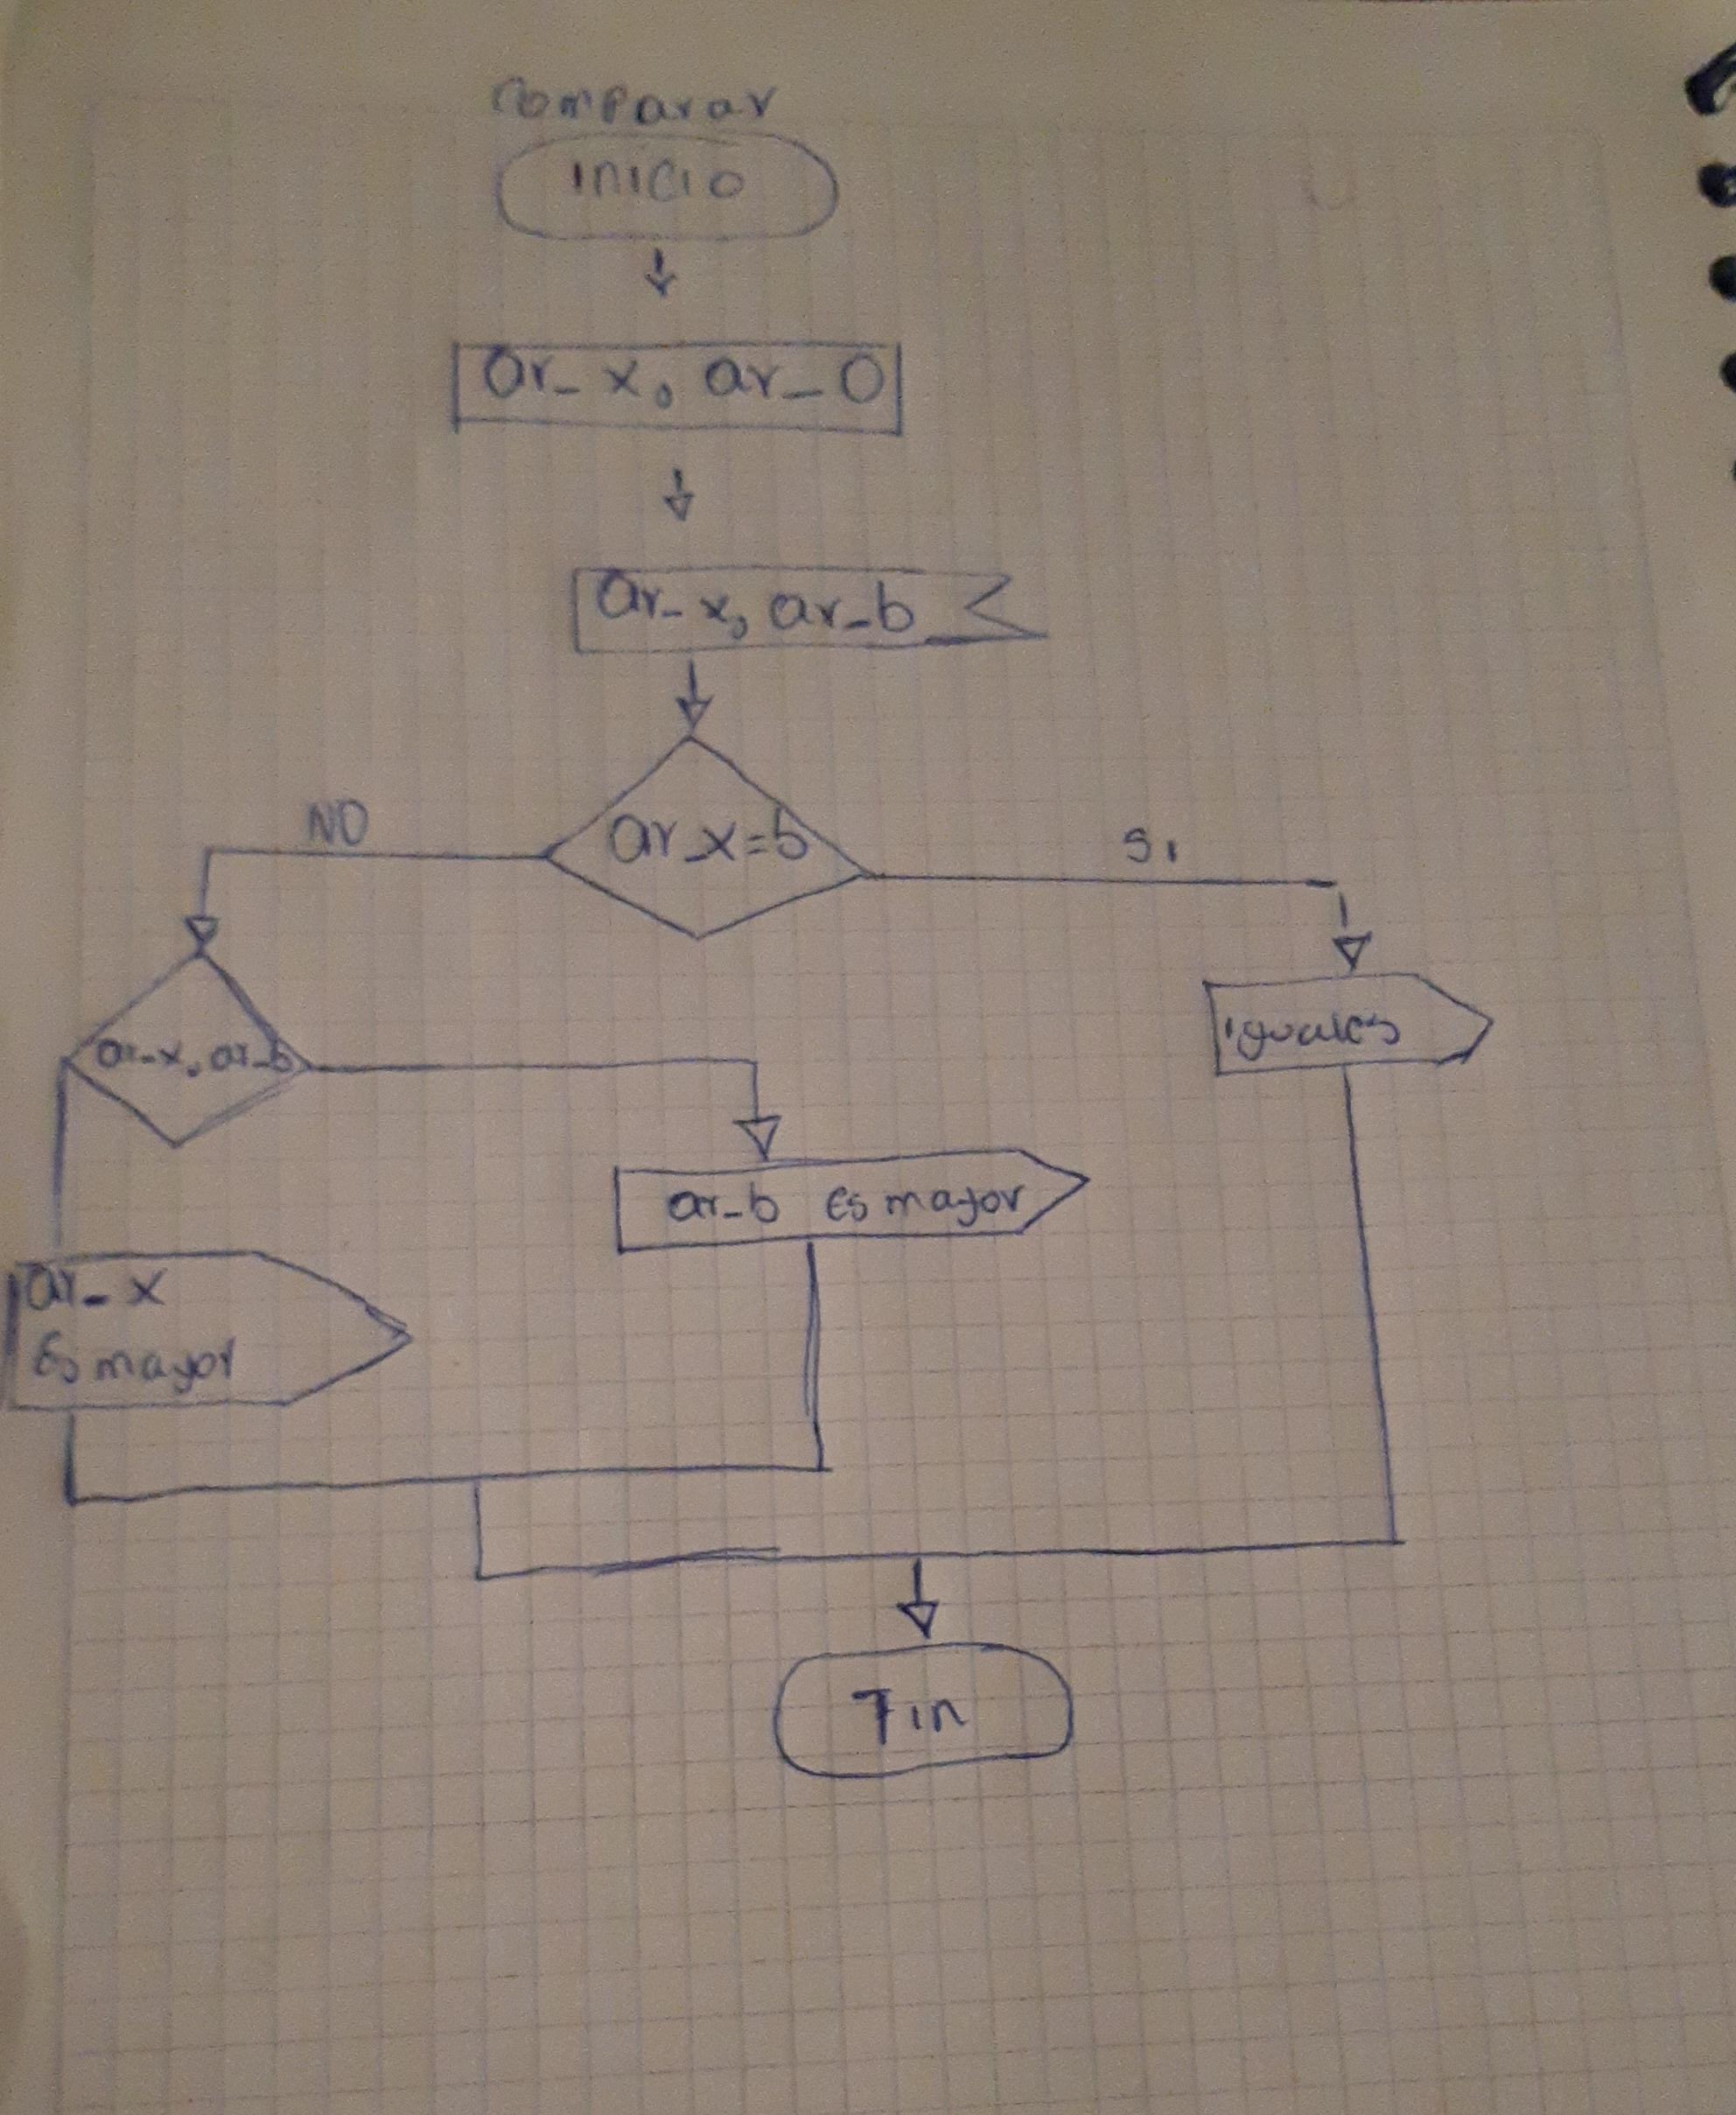 comparar
inicio
ar_x, ar_0
ar_x, ar_b
ar_x=b
NO
Si
ar_x, ar_b
iguales
ar_b Es mayor
ar_x
Es mayor
Fin